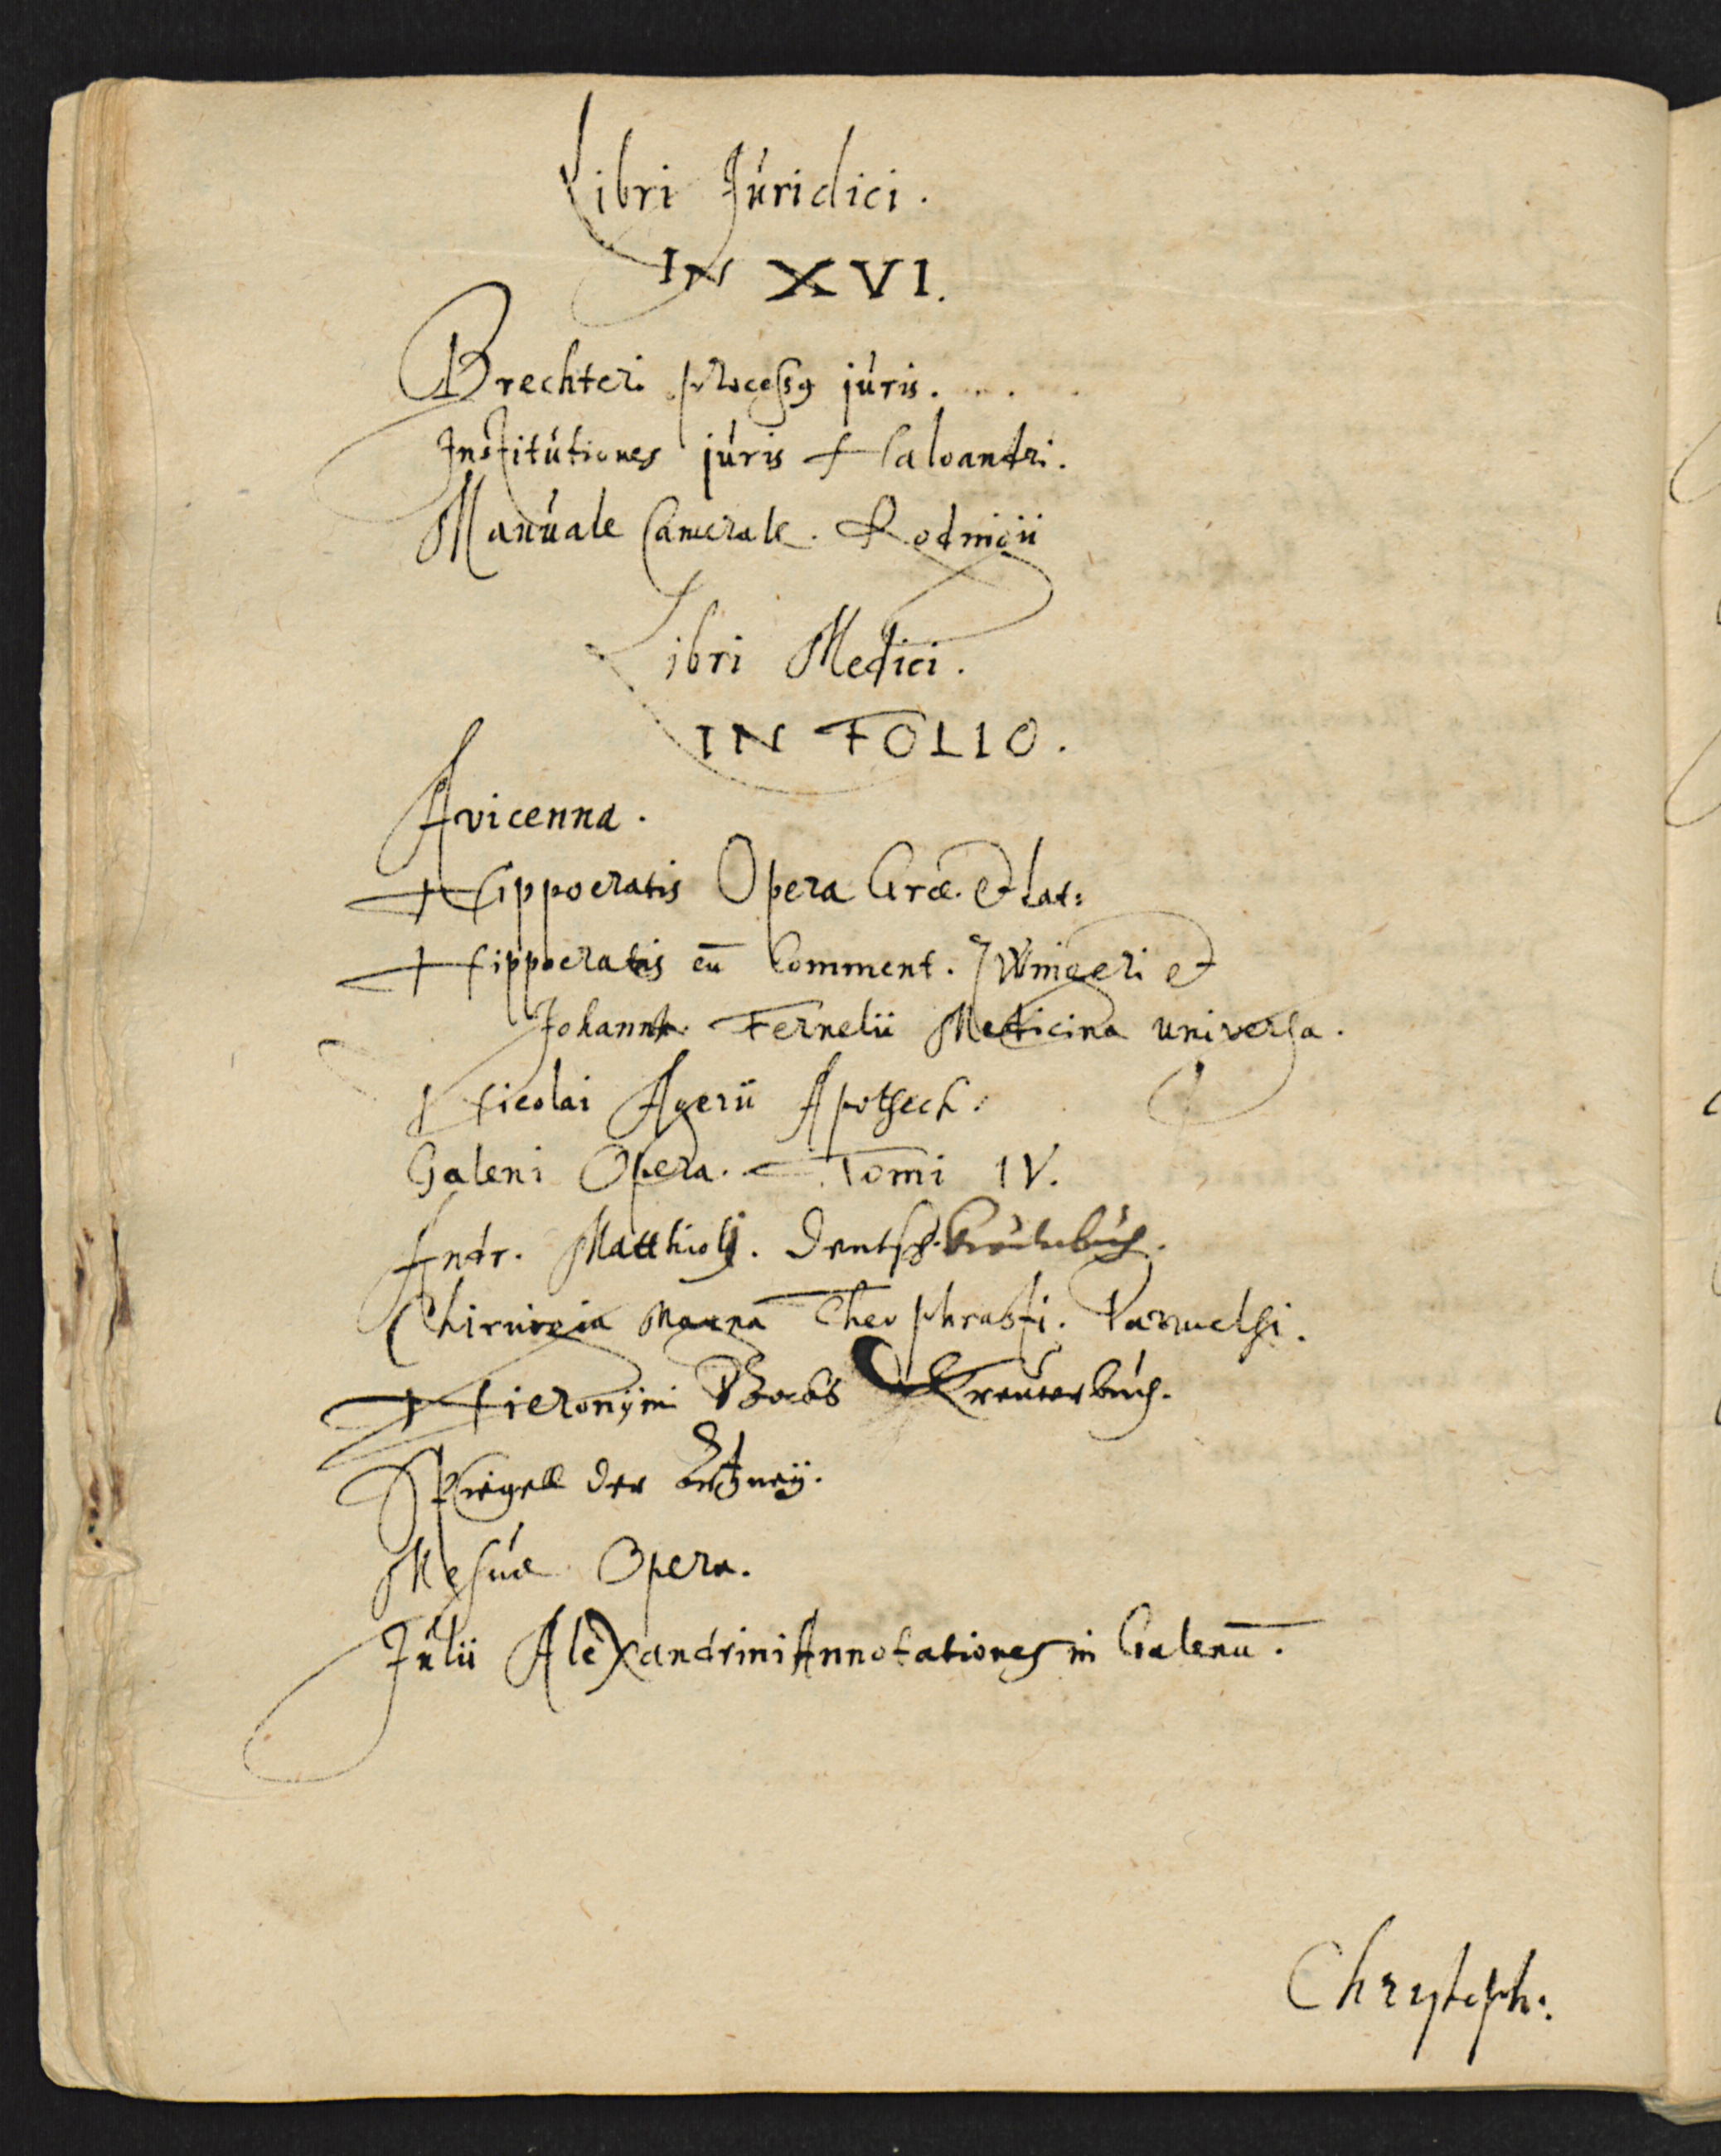 Libri Júridici.
IN XVI.
Brechteri processꝯ júris. . . .
Institútiones júris Haloandri.
Manúale Camerale. Rodingii
Libri Medici.
IN FOLIO.
Avicenna.
Hippocratis Opera Græ. et lat:
Hippocratis cū Comment. Zwingeri et
Johann. Fernelii Medicina universa.
Nicolai Agerii Apothech:
Galeni Opera. Tomi IV.
Andr. Matthioli. Deutsch. Kreuterbúch.
Chirurgia Magna Theophrasti. Paracelsi.
Hieronymi Bocks Kreúterbúch.
Spiegell der Artzney.
Mesúæ Opera.
Júlii Alexandrini Annotationes in Galenū.
Chrystoph: